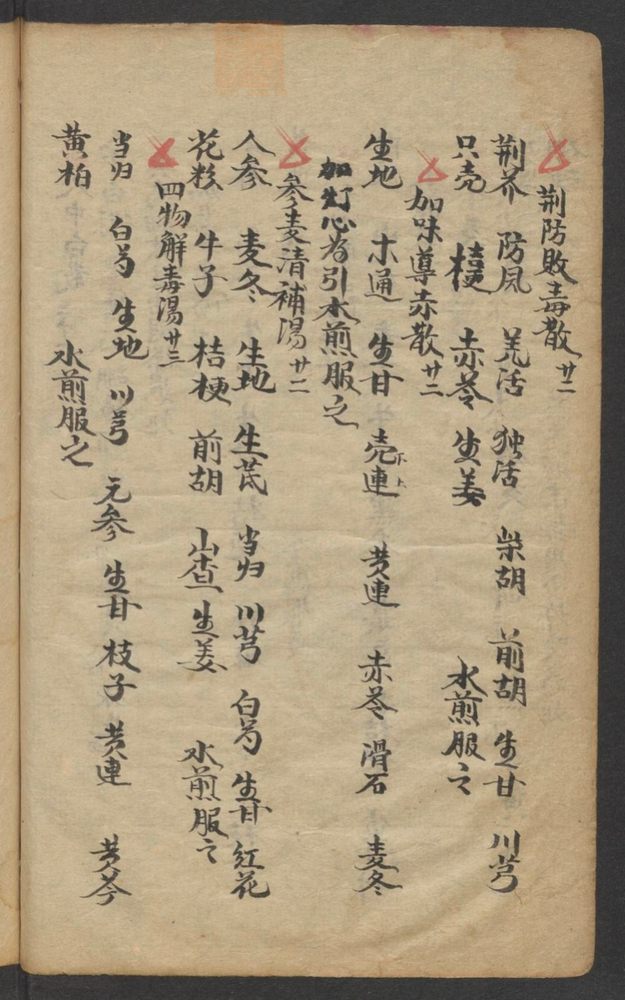 荆防敗毒散 廿二
荆芥 防風 羌活 独活 柴胡 前胡 生甘 川芎
只壳 桔梗 赤苓 生姜 水煎服之
加味導赤散 廿二
生地 木通 生甘 連壳 黄連 赤苓 滑石 麦冬
加灯心為引水煎服之
参麦清補湯 廿二
人参 麦冬 生地 生芪 当归 川芎 白芍 生甘 红花
花粉 牛子 桔梗 前胡 山查 生姜 水煎服之
四物解毒湯 廿三
当归 白芍 生地 川芎 元参 生甘 枝子 黄連 黄芩
黄柏 水煎服之